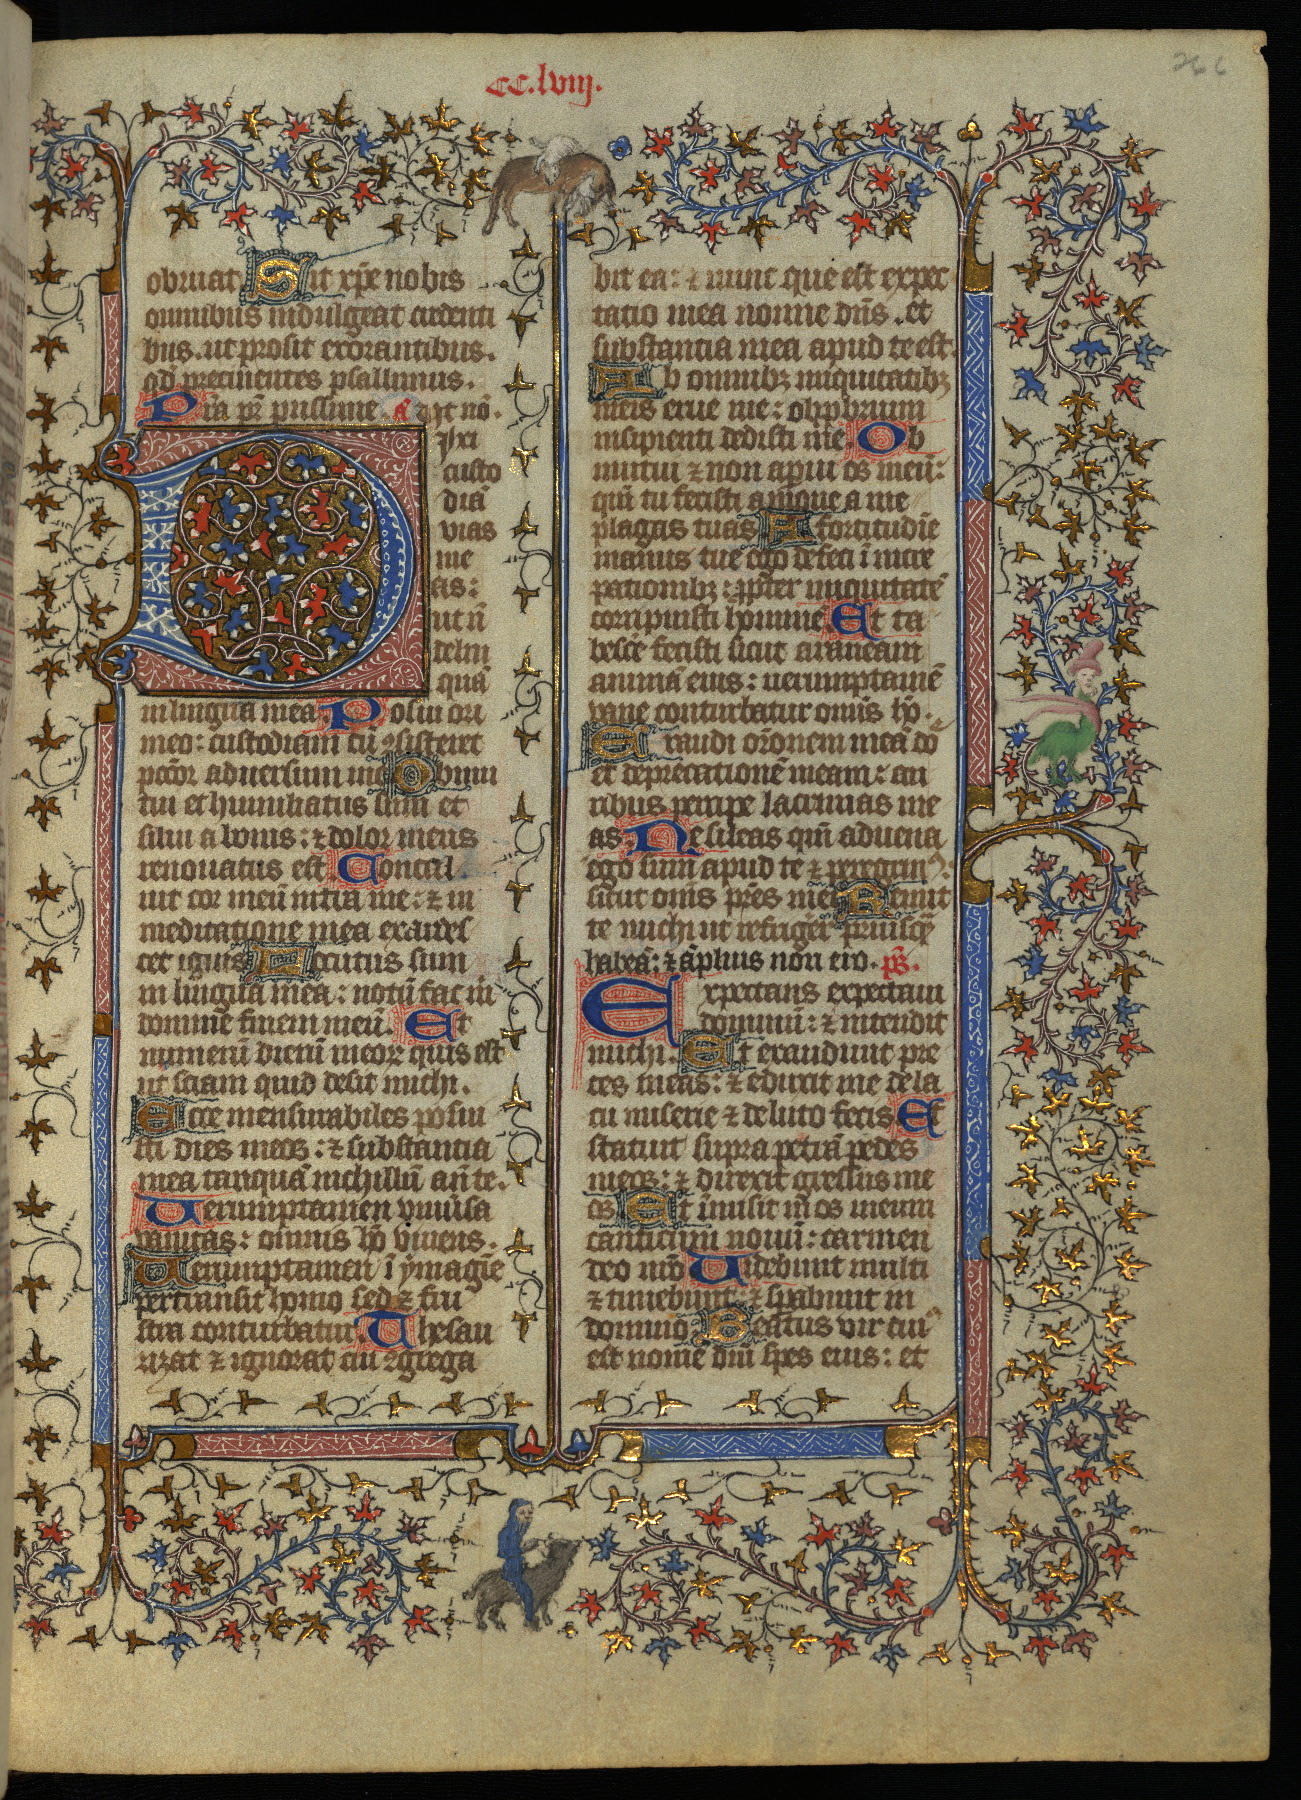 CC.lviij.
266
obruat Sit xp̄e nobis
omnibus indulgeat credenti
bus. ut prosit exorantibus.
qd̄ precinentes psallimus.
Pr̄a pr̄ pussime. A Vt nō.
Dixi
custo
diā
vias
me
as:
ut nō
delin
quā
in lingua mea Posui ori
meo: custodiam cū ꝯsisteret
pctōr adversum me Obmu
tui et humiliatus sum et
silui a bonis: ⁊ dolor meus
renovatus est Concal
uit cor meū intra me: ⁊ in
meditatione mea exardes
cet ignis Locutus sum
in lingua mea: notū fac m̄
domine finem meū. Et
numerū dierū meoꝝ quis est
ut sciam quid desit michi.
Ecce mensurabiles posui
sti dies meos: ⁊ substantia
mea tanquā nichillū an̄ te.
Uerumptamen vniūsa
vanitas: omnis hō vivens.
Uerumptamen ī ymagīe
pertransit homo sed ⁊ fru
stra conturbatur Thesau
rizat ⁊ ignorat cui ꝯgrega
bit ea: Et nunc que est expec
tatio mea nonne dn̄s. et
substantia mea apud te est.
Ab omnibꝫ iniquitatibꝫ
meis erue me: obprobrium
insipienti dedisti me Ob
mutui ⁊ non aperui os meū:
qm̄ tu fecisti amove a me
plagas tuas A fortitudīe
manus tue ego defeci ī incre
pationibꝫ: ꝓpter iniquitatē
corripuisti hominē Et ta
besce fecisti sicut araneam
animā eius: uerumptamē
vane conturbatur omīs hō.
Exaudi or̄onem meā do
et deprecationē meam: au
ribus percipe lacrimas me
as Ne sileas qm̄ aduena
ego sum apud te ⁊ peregrinꝰ:
sicut om̄s pr̄es mei Remit
te michi ut refriger priusꝗ̄
habeā: ⁊ āplius non ero. ps̄.
Expectans expectaui
dominū: ⁊ intendit
michi. Et exaudiuit pre
ces meas: ⁊ eduxit me de la
cu miserie ⁊ de luto fecis Et
statuit supra petrā pedes
meos: ⁊ direxit gressus me
os Et īmisit in os meum
canticum nouū: carmen
deo nr̄o Uidebunt multi
⁊ timebunt: ⁊ sperabunt in
domino Beatus vir cuiꝰ
est nomē dn̄i spes eius: et